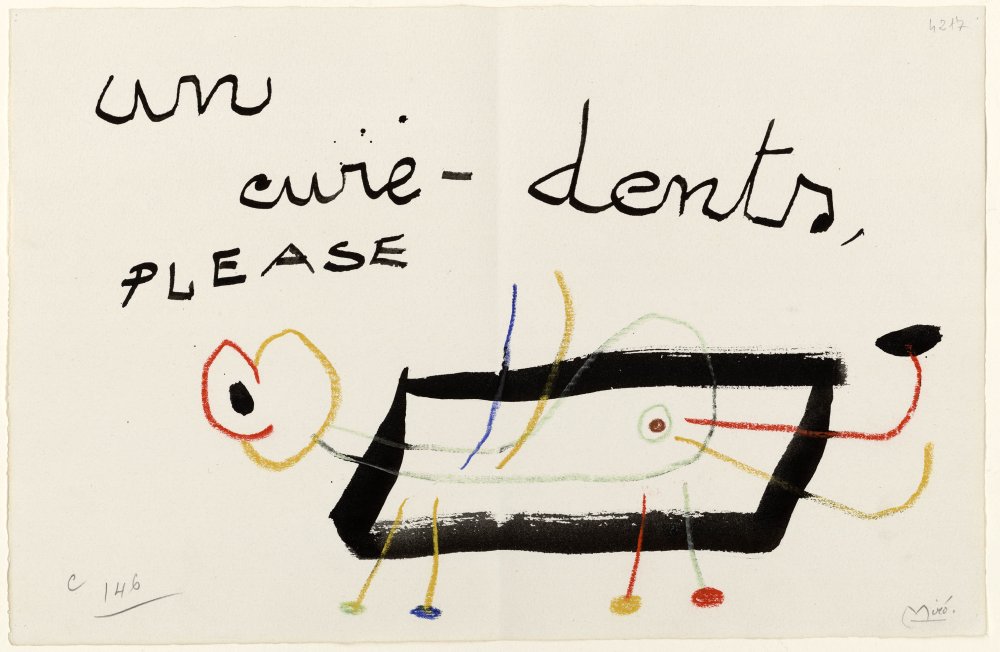 4217
un
curë-dents,
PLEASE
C 146
Miró.